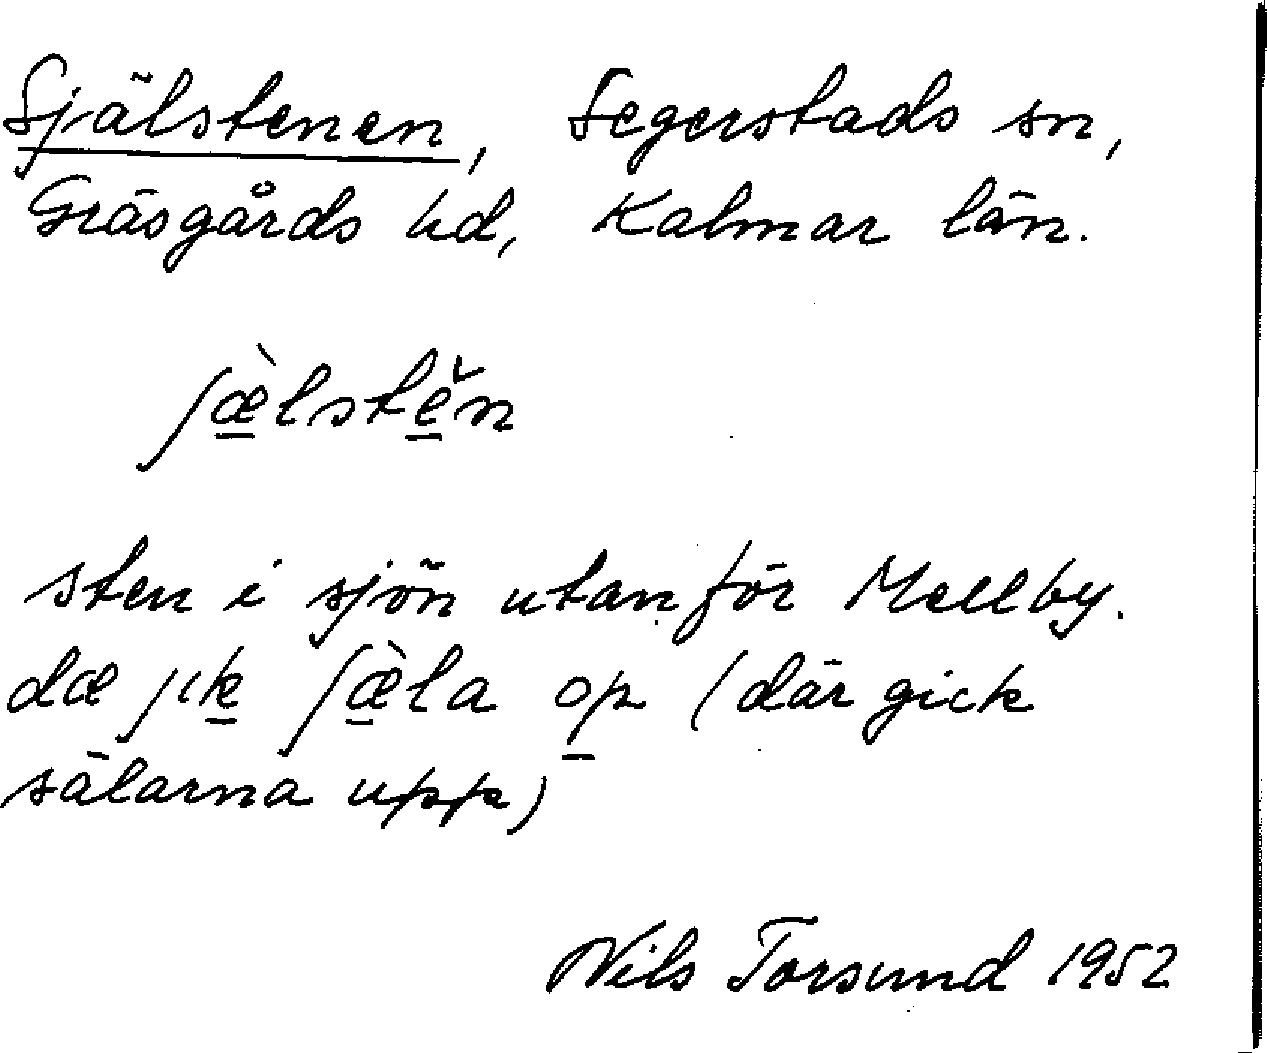 Själstenen, Segerstads sn,
Gräsgårds hd, Kalmar län.
ʃæ̠̀lstě̠n
sten i sjön utanför Mellby.
dæ jık̠ ʃæ̠̀la op̠ (där gick
sälarna uppe)
Nils Torsund 1952